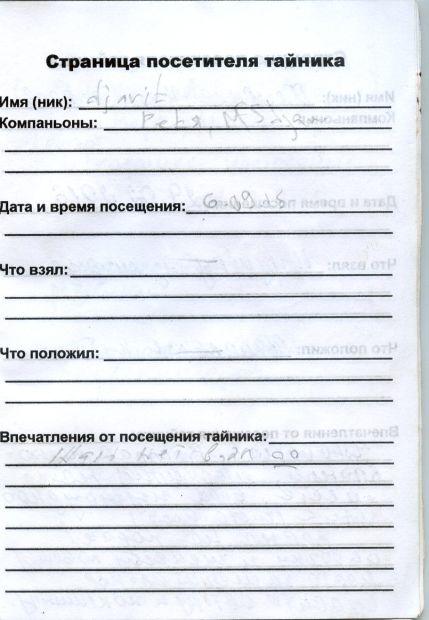 Страница посетителя тайника
Имя (ник): djnvit
Компаньоны: Petя,
Дата и время посещения: 6.09.15
Что взял:
Что положил:
Впечатления от посещения тайника: